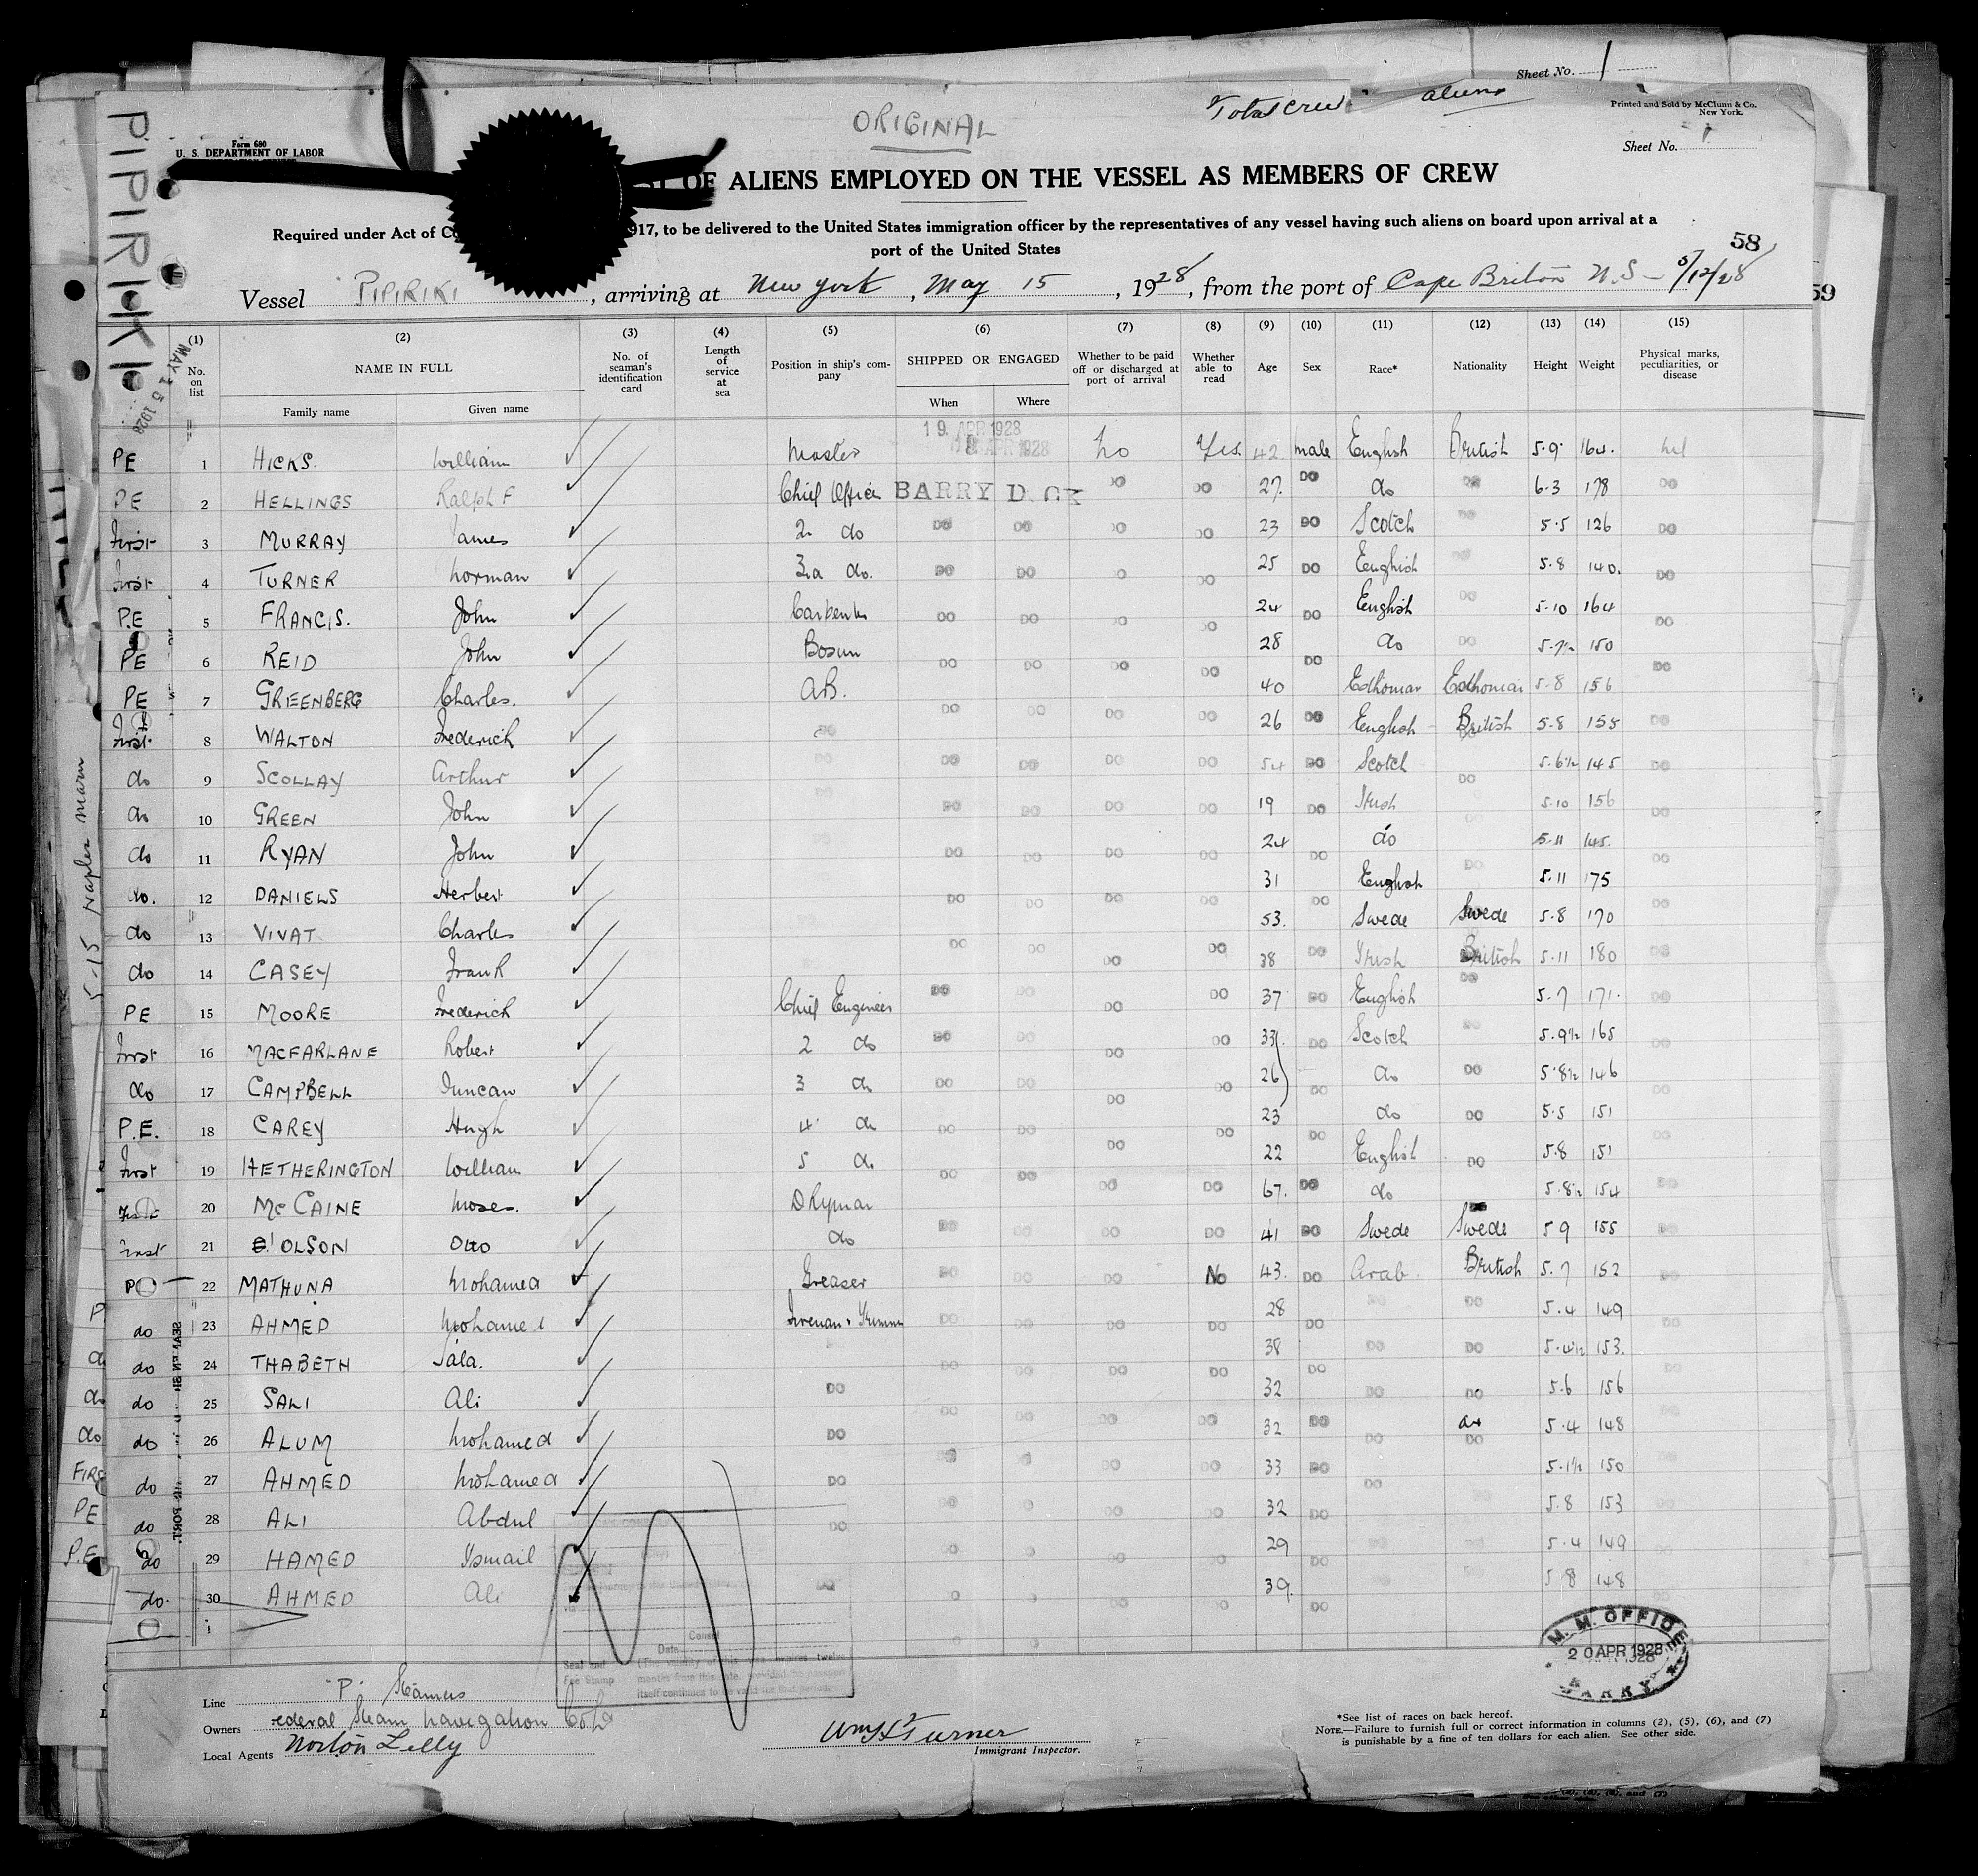 Sheet No. 1
Total crew aliens
Printed and Sold by McClunn & Co.
New York.
ORIGINAL
Form 680
U. S. DEPARTMENT OF LABOR
Sheet No. 1.
PIPIRIKI
OF ALIENS EMPLOYED ON THE VESSEL AS MEMBERS OF CREW
Required under Act of 917, to be delivered to the United States immigration officer by the representatives of any vessel having such aliens on board upon arrival at a
port of the United States
58
59
Vessel PIPIRIKI, arriving at New York, May 15, 1928, from the port of Cape Briton N.S - 5/12/28
(1) (2) (3) (4) (5) (6) (7) (8) (9) (10) (11) (12) (13) (14) (15)
No. on list NAME IN FULL No. of seaman's identification card Length of service at sea Position in ship's company SHIPPED OR ENGAGED Whether to be paid off or discharged at port of arrival Whether able to read Age Sex Race* Nationality Height Weight Physical marks, peculiarities, or disease
Family name Given name When Where
MAY 15 1928
19 APR 1928
APR 1928
PE 1 HICKS. William Master No Yes 42 male English British 5.9 164.
PE 2 HELLINGS Ralph F Chief Officer BARRY DOCK DO DO 27. DO do DO 6-3 178 DO
First 3 MURRAY James 2 do DO DO DO DO 23 DO Scotch DO 5.5 126 DO
First 4 TURNER Norman 3rd do. DO DO DO DO 25 DO English DO 5.8 140. DO
P.E 5 FRANCIS. John Carpenter DO DO DO DO 24 DO English DO 5.10 164 DO
PE 6 REID John Bosun DO DO DO DO 28 DO do DO 5.7½ 150 DO
PE 7 GREENBERG Charles. A.B. DO DO DO DO 40 Esthonian Esthonian 5.8 156
First 8 WALTON Frederick DO DO DO DO DO 26 DO English British 5.8 155 DO
do 9 SCOLLAY Arthur DO DO DO DO DO 54 DO Scotch DO 5.6½ 145 DO
do 10 GREEN John DO DO DO DO 19 DO Irish DO 5.10 156 DO
do 11 RYAN John DO DO DO DO 24 DO do 5.11 145. DO
do. 12 DANIELS Herbert DO DO DO DO 31 DO English DO 5.11 175 DO
do 13 VIVAT Charles DO DO DO DO 53. Swede Swede 5.8 170
do 14 CASEY Frank DO DO DO DO 38 DO Irish British 5.11 180 DO
PE 15 MOORE Frederick Chief Engineer DO DO DO DO 37 DO English DO 5.7 171. DO
First 16 MACFARLANE Robert 2 do DO DO DO DO 33 DO Scotch DO 5.9½ 165 DO
do 17 CAMPBELL Duncan 3 do DO DO DO DO 26 DO do DO 5.8½ 146 DO
P.E. 18 CAREY Hugh 4 do DO DO DO DO 23 DO do DO 5.5 151 DO
First 19 HETHERINGTON William 5 do DO DO DO DO 22 English DO 5.8 151
20 McCAINE Moses. DKyman DO DO DO DO 67. DO do DO 5.8½ 154 DO
First 21 OLSON Otto do DO DO DO DO 41 DO Swede Swede 5 9 155 DO
22 MATHUNA Mohamed Greaser DO DO DO No 43. DO Arab British 5.7 152 DO
do 23 AHMED Mohamed Fireman & Trimmer DO DO DO DO 28 DO DO DO 5.4 149 DO
do 24 THABETH Sala. DO DO DO DO 38 DO DO DO 5.4½ 153. DO
do 25 SALI Ali DO DO DO DO DO 32 DO DO 5.6 156
do 26 ALUM Mohamed DO DO DO DO DO 32 DO DO DO 5.4 148 DO
do 27 AHMED Mohamed DO DO DO DO DO 33 DO DO 5.1½ 150 DO
do 28 ALI Abdul DO DO DO DO DO 32 DO 5.8 153 DO
do 29 HAMED Ismail DO DO DO 29 DO DO 5.4 149 DO
do. 30 AHMED Ali DO DO DO 39. DO 5 8 148
5-15 Naples Maru
FIRS
PE
P.E
Consul
Date
Seal and
Fee Stamp
M. M. OFFICE
20 APR 1928
BARRY
Line "P" Steamers
Owners Federal Steam Navigation Co Ld
Local Agents Norton Lilly
Wm H Turner
Immigrant Inspector.
*See list of races on back hereof.
NOTE.—Failure to furnish full or correct information in columns (2), (5), (6), and (7)
is punishable by a fine of ten dollars for each alien. See other side.